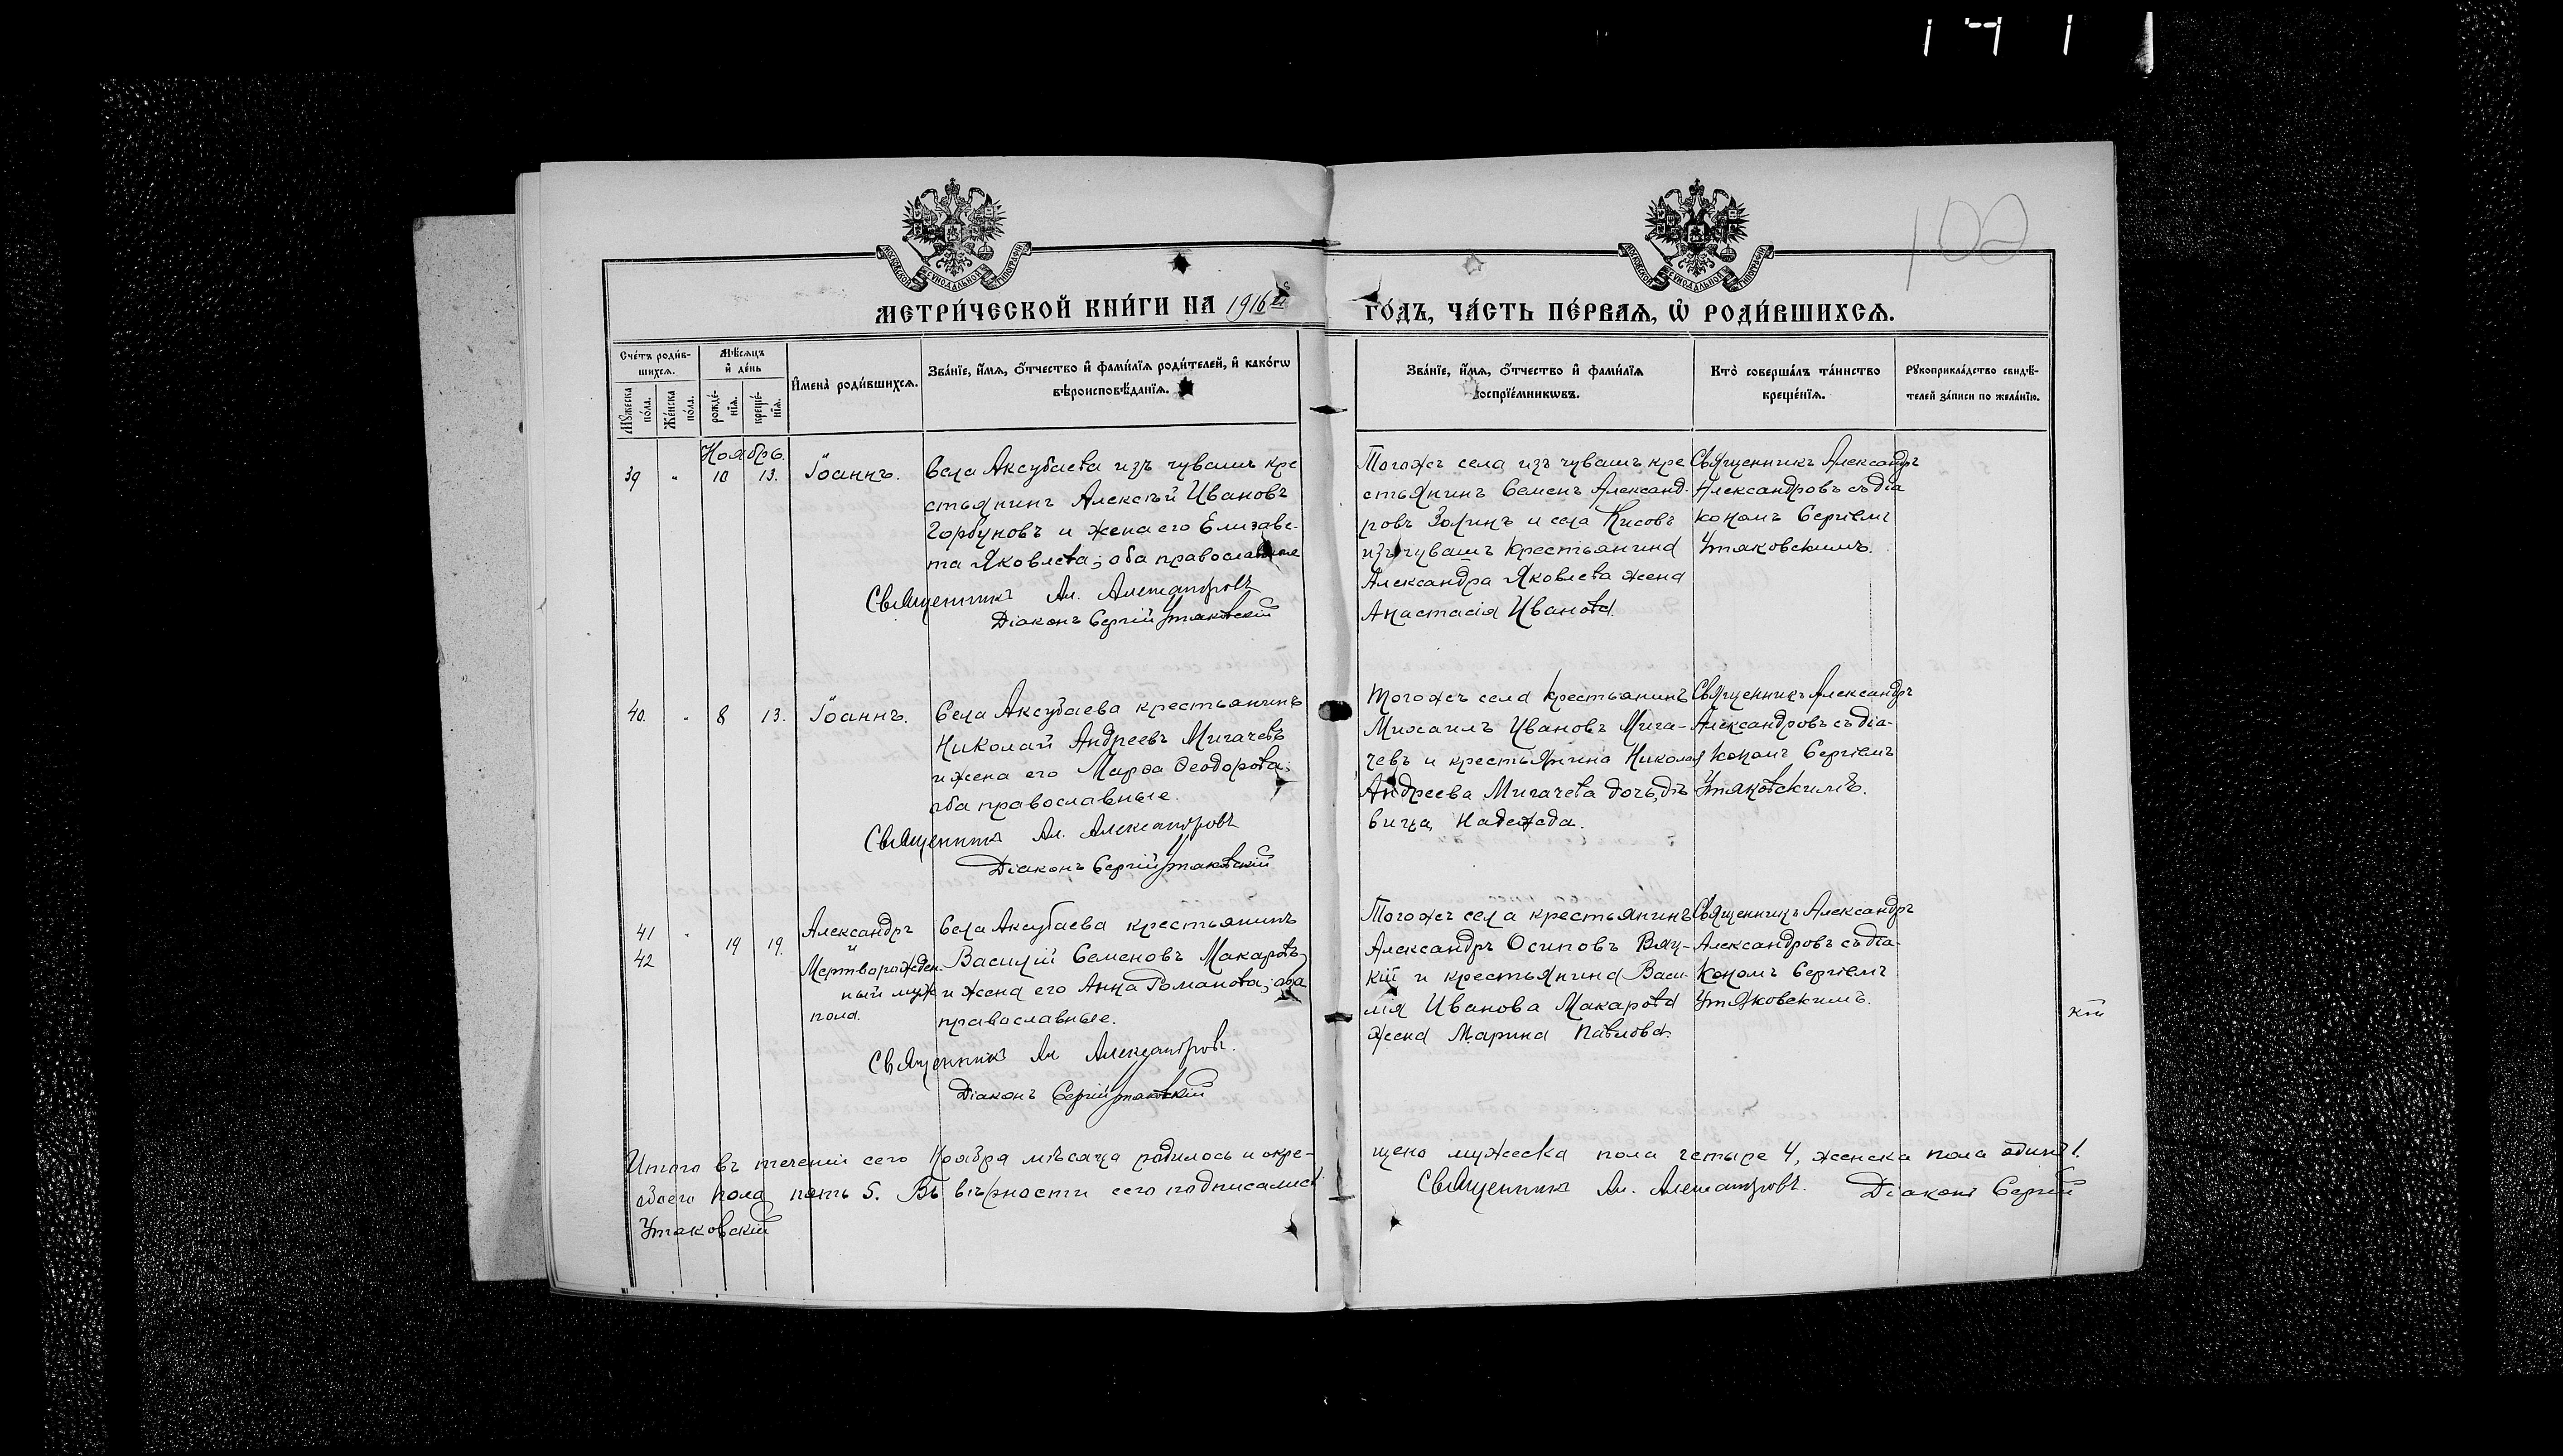 1411
МОСКОВСКОЙ СѴНОДАЛЬНОЙ ТИПОГРАФІИ
МОСКОВСКОЙ СѴНОДАЛЬНОЙ ТИПОГРАФІИ
100
МЕТРИ́ЧЕСКОЙ КНИ́ГИ НА 1916й
ГО́ДЪ, ЧА́СТЬ ПЕ́РВАѦ, Ѡ҆ РОДИ́ВШИХСѦ.
Сче́тъ роди́в-
шихсѧ.
Мꙋ́жеска по́ла.
Же́нска по́ла.
Мѣ́сѧцъ
и҆ де́нь
рожде́-нїѧ.
креще́-нїѧ.
И҆мена̀ роди́вшихсѧ.
Зва́нїе, и҆́мѧ, ѻ҆́тчество и҆ фамі́лїѧ роди́телей, и҆ како́гѡ
вѣроисповѣ́данїѧ.
Зва́нїе, и҆́мѧ, ѻ҆́тчество и҆ фамі́лїѧ
воспрїе́мникѡвъ.
Кто̀ соверша́лъ та́инство
креще́нїѧ.
Рꙋкоприкла́дство свидѣ́-
телей за́писи по жела́нїю.
Ноябрь
39 „ 10 13. Іоаннъ.
Села Аксубаева изъ чувашъ кре
стьянинъ Алексѣй Ивановъ
Горбуновъ и жена его Елизаве-
та Яковлева; оба православные
Священникъ Ал. Александровъ
Діаконъ Сергій Утяковскій
Тогожъ села изъ чувашъ кре
стьянинъ Семенъ Александ-
ровъ Золинъ и села Кисовъ
изъ чувашъ крестьянина
Александра Яковлева жена
Анастасія Иванова.
Священникъ Александръ
Александровъ съ діа
кономъ Сергіемъ
Утяковскимъ.
40. „ 8 13. Іоаннъ.
Села Аксубаева крестьянинъ
Николай Андреевъ Мигачевъ
и жена его Марѳа Ѳеодорова;
оба православные.
Священникъ Ал. Александровъ
Діаконъ Сергій Утяковскій
Тогожъ села крестьянинъ
Михаилъ Ивановъ Мига-
чевъ и крестьянина Николая
Андреева Мигачева дочь, дѣ
вица, Надежда.
Священникъ Александръ
Александровъ съ діа-
кономъ Сергіемъ
Утяковскимъ.
41 „ 19 19. Александръ
42 и
Мертворожден-
ный муж.
пола.
Села Аксубаева крестьянинъ
Василій Семеновъ Макаровъ
и жена его Анна Романова; оба
православные.
Священникъ Ал Александровъ.
Діаконъ Сергій Утяковскій
Тогожъ села крестьянинъ
Александръ Осиповъ Вяц-
кій и крестьянина Васи-
лія Иванова Макарова
жена Марина Павлова.
Священникъ Александръ
Александровъ съ діа-
кономъ Сергіемъ
Утяковскимъ.
кій
Итого въ теченіи сего Ноября мѣсяца родилось и окре-
щено мужеска пола четыре 4, женска пола одинъ 1.
обоего пола пять 5. Въ вѣрности сего подписались:
Священникъ Ал. Александровъ. Діаконъ Сергій
Утяковскій